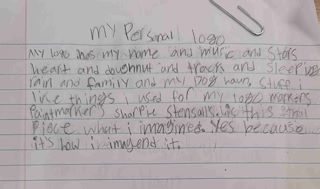 my Personal logo
My logo has my name and music and stars
heart and doughnut and tracks and sleeping
rain and family and my dog stuff i
like things i used for my logo markers
Paintmarkers sharpie stensails. is this final
Piece what i imagined. Yes because
it's how i imagend it.